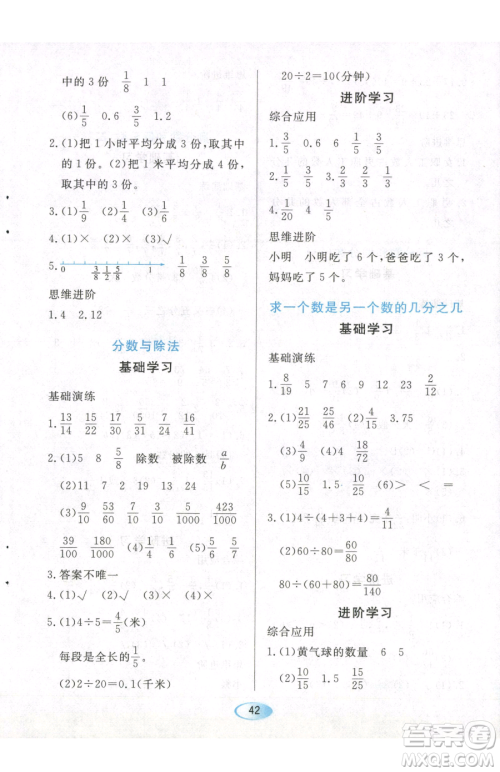 中的3份 1/8 1 1
(6)1/5 0.6 3/5 1.2
2.(1)把1小时平均分成3份，取其
中的1份。(2)把1米平均分成4份，
取其中的3份。
3.(1)1/9 (2)1/4 (3)1/6
4.(1)× (2)× (3)√
5. 0 3/8 1/2 5/8 1 1/8 3/8 5/8
思维进阶
1.4 2.12
分数与除法
基础学习
基础演练
1.13/14 15/22 13/20 7/12 16/17 24/41
2.(1)5 8 5/8 除数 被除数 a/b
(2)7 11 2 19 13 24
(3)9/10 53/60 7/10 83/1000 423/1000
39/100 180/1000 (4)1/4 1/5 1/4 1/5
3.答案不唯一
4.(1)√ (2)× (3)×
5.(1)4÷5=4/5(米)
每段是全长的1/5。
(2)2÷20=0.1(千米)
20÷2=10(分钟)
进阶学习
综合应用
1.3/5 0.6 6 15 3/5
2.1/5 3/5 3.1/3 2/3 4/3
4.1/20 4 1/5
思维进阶
小明 小明吃了6个，爸爸吃了3个，
妈妈吃了5个。
求一个数是另一个数的几分之几
基础学习
基础演练
1.8/19 15 7 6 9 12 2/12
2.(1)21/25 25/46 (2)4/15 3.75
(3)1/2 (4)18/72
(5)15/2 1/15 10/25 3.> < =
4.(1)4÷(4+3+4)=4/11
(2)60÷80=60/80
80÷(60+80)=80/140
进阶学习
综合应用
1.(1)黄气球的数量 6 5
(2)10/15 10/25 15/25
42
答案圈
MXQE.COM